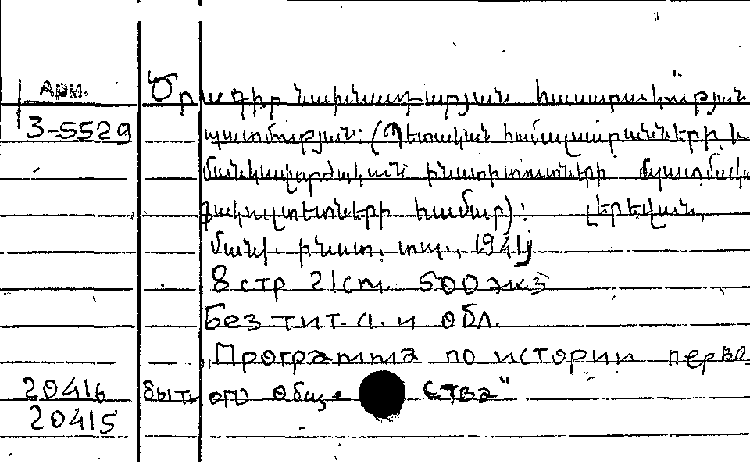 Арм.
3-5529
Ծրագիր նախնադարյան հասարակության
պատմության: (Պետական համալսարանների և
մանկավարժական ինստիտուտների պատմակ
ֆակուլտետների համար): Երևան,
մանկ. ինստ. տպ., 1941
8 стр 21 cm. 500 экз
Без тит. л. и обл.
„Программа по истории перво
20416 быт ого обще ства"
20415